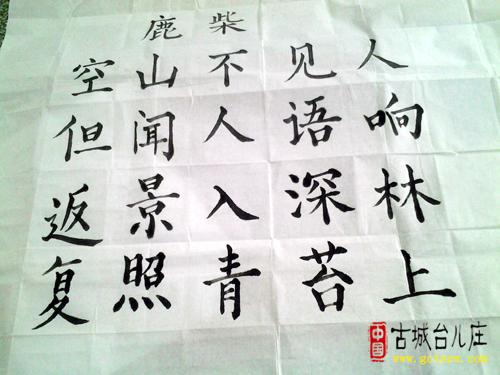 鹿柴
空山不见人
但闻人语响
返景入深林
复照青苔上
中国
古城台儿庄